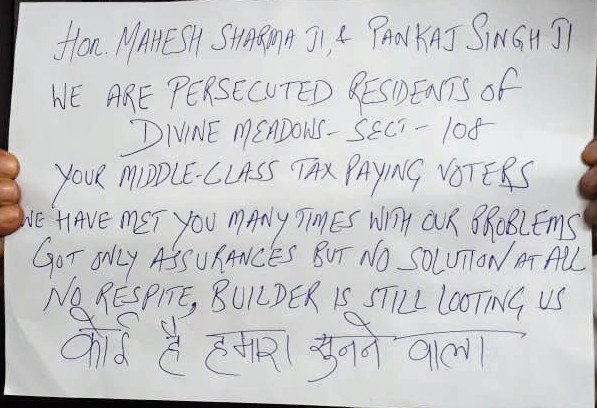 Hon. MAHESH SHARMA JI, & PANKAJ SINGH JI
WE ARE PERSECUTED RESIDENTS OF
DIVINE MEADOWS - SECT - 108
YOUR MIDDLE-CLASS TAX PAYING VOTERS
WE HAVE MET YOU MANY TIMES WITH OUR PROBLEMS
GOT ONLY ASSURANCES BUT NO SOLUTION AT ALL
NO RESPITE, BUILDER IS STILL LOOTING US
कोई है हमारा सुनने वाला